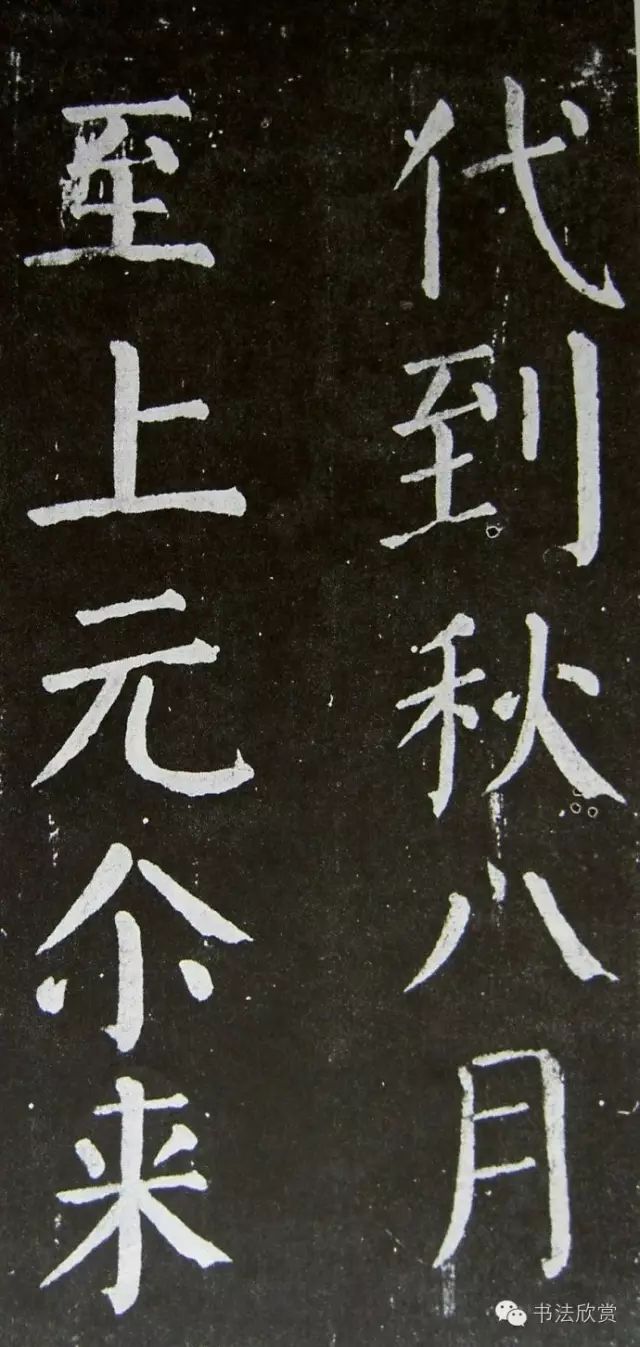 代到秋八月
至上元尒来
书法欣赏